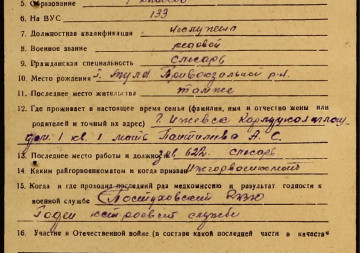 5. Образование 7 классов
6. На ВУС 133
7. Должностная квалификация
8. Военное звание рядовой
9. Гражданская специальность слесарь
10. Место рождения г. Тула Привокзальной р-н
11. Последнее место жительства также
12. Где проживает в настоящее время семья (фамилия, имя и отчество жены или
родителей и точный их адрес) г. Ижевск
дом 1 кв. 1 мать А. С.
13. Последнее место работы и должность 622 слесарь
14. Каким райгорвоенкоматом и когда призван Ижгорвоенкомат
15. Когда и где проходил последний раз медкомиссию и результат годности к
военной службе
Годен к строевой службе
16. Участие в Отечественной войне (в составе какой последней части в качеств